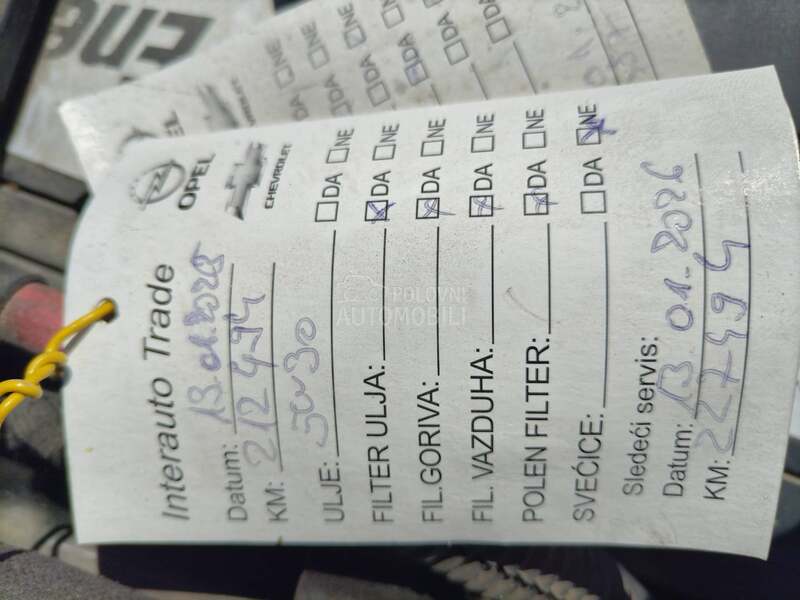 OPEL
CHEVROLET
Interauto Trade
Datum: 13.01.2025
KM: 212 494
ULJE: 5w30 DA NE
FILTER ULJA: DA NE
FIL.GORIVA: DA NE
FIL. VAZDUHA: DA NE
POLEN FILTER: DA NE
SVEĆICE: DA NE
Sledeći servis:
Datum: 13 01.2026
KM: 227494
POLOVNI
AUTOMOBILI